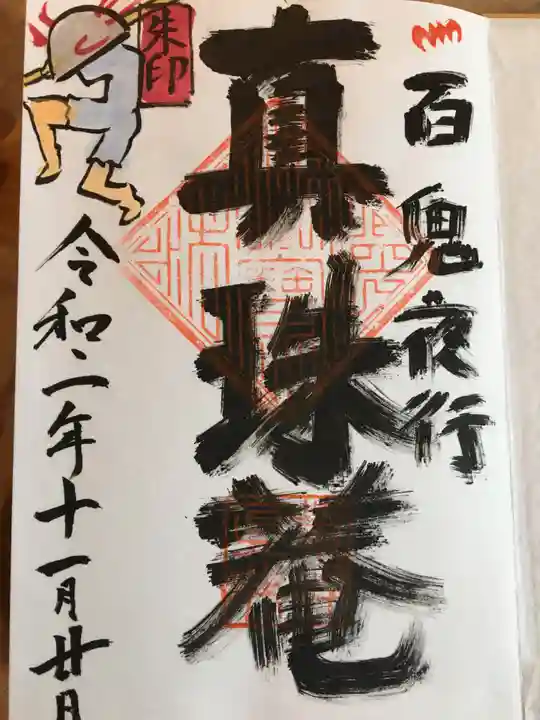 百鬼夜行
真珠菴
朱印
令和二年十一月廿日